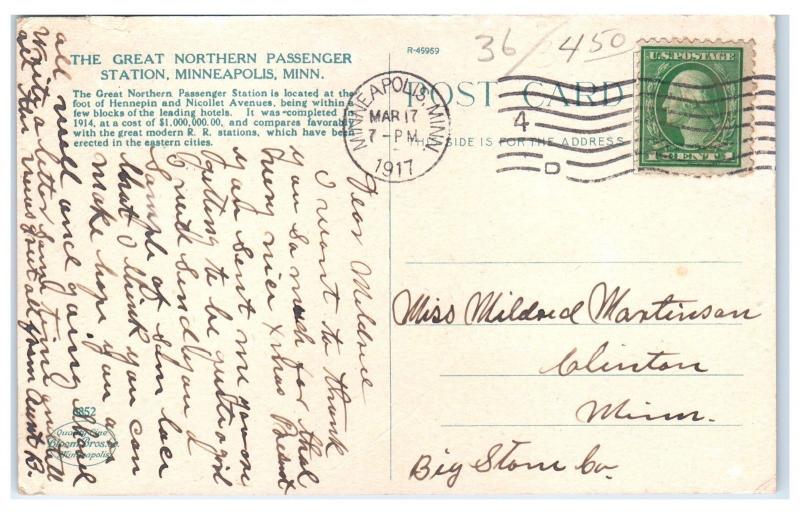 THE GREAT NORTHERN PASSENGER
STATION, MINNEAPOLIS, MINN.
The Great Northern Passenger Station is located at the
foot of Hennepin and Nicollet Avenues, being within a
few blocks of the leading hotels. It was completed in
1914, at a cost of $1,000,000.00, and compares favorably
with the great modern R. R. stations, which have been
erected in the eastern cities.
R-45959
36/450
POST CARD
THIS SIDE IS FOR THE ADDRESS
MINNEAPOLIS, MINN.
MAR 17
7-PM
1917
4
D
U.S. POSTAGE
1 CENT 1
Dear Mildred
I want to thank
you so much for that
very nice Xmas Present
you sent me you are
getting to be quite a girl
I will send you a
Sample of some lace
that I think you can
make hope you are
all well and going
Write a letter some time
all the news Grut all from Aunt B.
Miss Mildred Martinson
Clinton
Minn.
Big Stone Co.
6852
Quality Line
Bloom Bros. Co.
Minneapolis